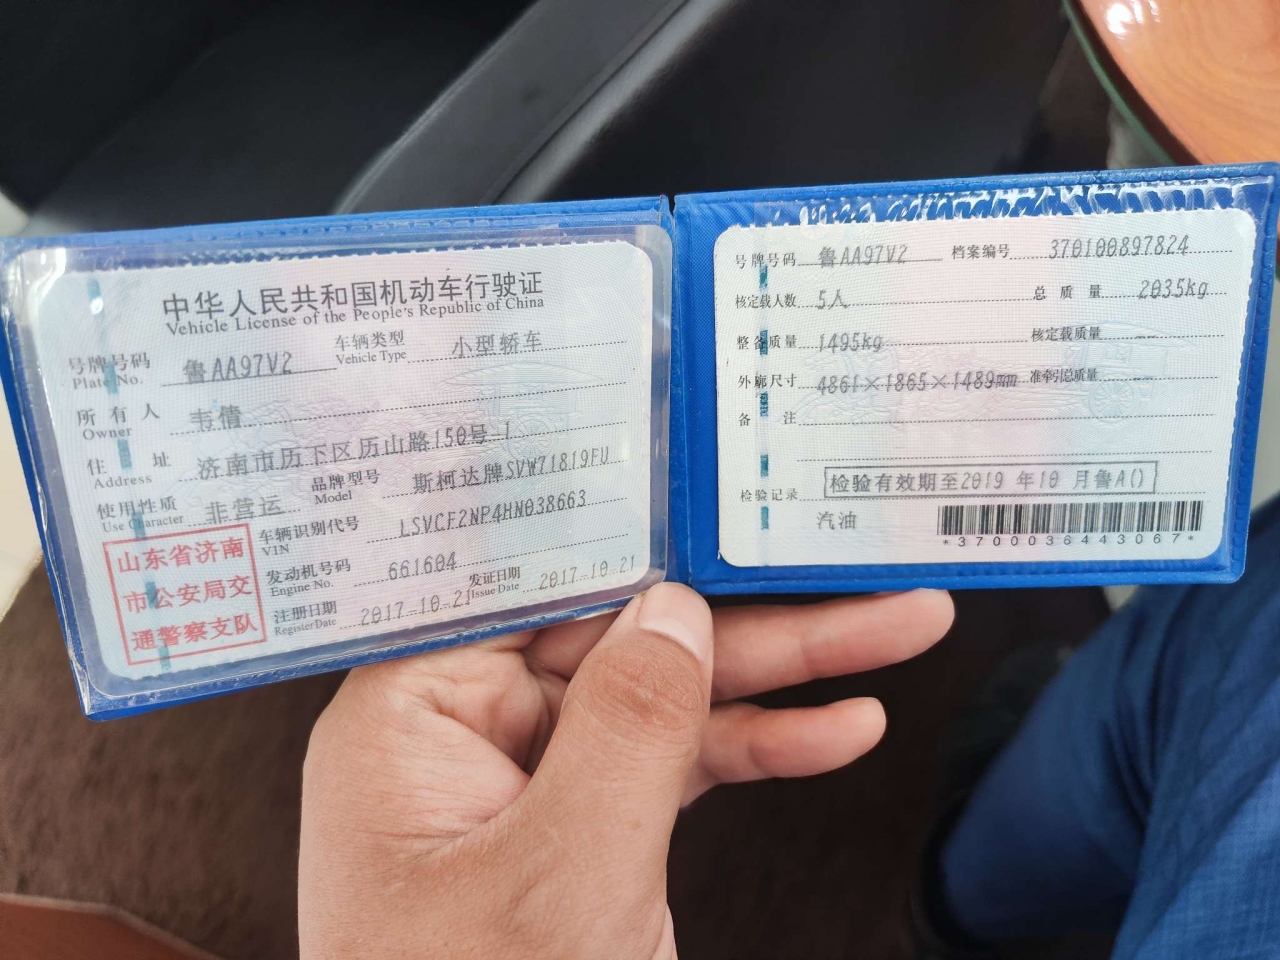 中华人民共和国机动车行驶证
Vehicle License of the People's Republic of China
号牌号码 鲁AA97V2 车辆类型 小型轿车
Plate No. Vehicle Type
所有人 韦倩
Owner
住址 济南市历下区历山路150号-1
Address
使用性质 非营运 品牌型号 斯柯达牌SVW71819FU
Use Character Model
车辆识别代号 LSVCF2NP4HN038663
VIN
发动机号码 661604
Engine No.
注册日期 2017-10-21 发证日期 2017-10-21
Register Date Issue Date
山东省济南
市公安局交
通警察支队
号牌号码 鲁AA97V2 档案编号 370100897824
核定载人数 5人 总质量 2035kg
整备质量 1495kg 核定载质量 --
外廓尺寸 4861×1865×1489mm 准牵引总质量
备注
检验记录 检验有效期至2019 年10 月鲁A()
汽油
*3700036443067*